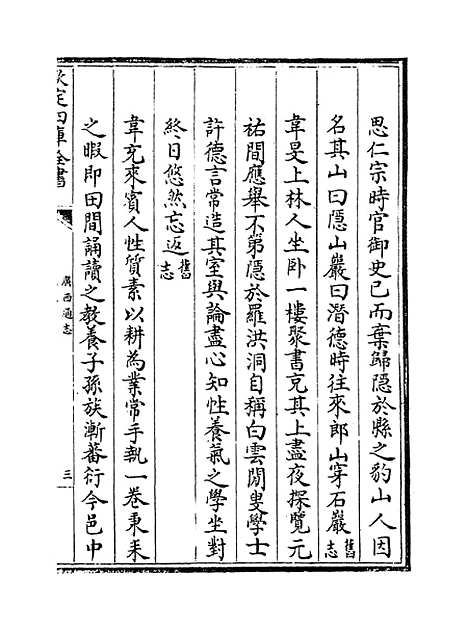 思仁宗時官御史已而棄歸隠於縣之豹山人因
名其山曰隠山巖曰潛德時往來郎山穿石巖舊志
韋旻上林人坐卧一樓聚書充其上晝夜探覽元
祐間應舉不第隠於羅洪洞自稱白雲閒叟學士
許德言常造其室與論盡心知性養氣之學坐對
終日悠然忘返舊志
韋充來賓人性質素以耕為業常手執一卷秉耒
之暇即田間誦讀之教養子孫族漸蕃衍今邑中
欽定四庫全書
廣西通志
三